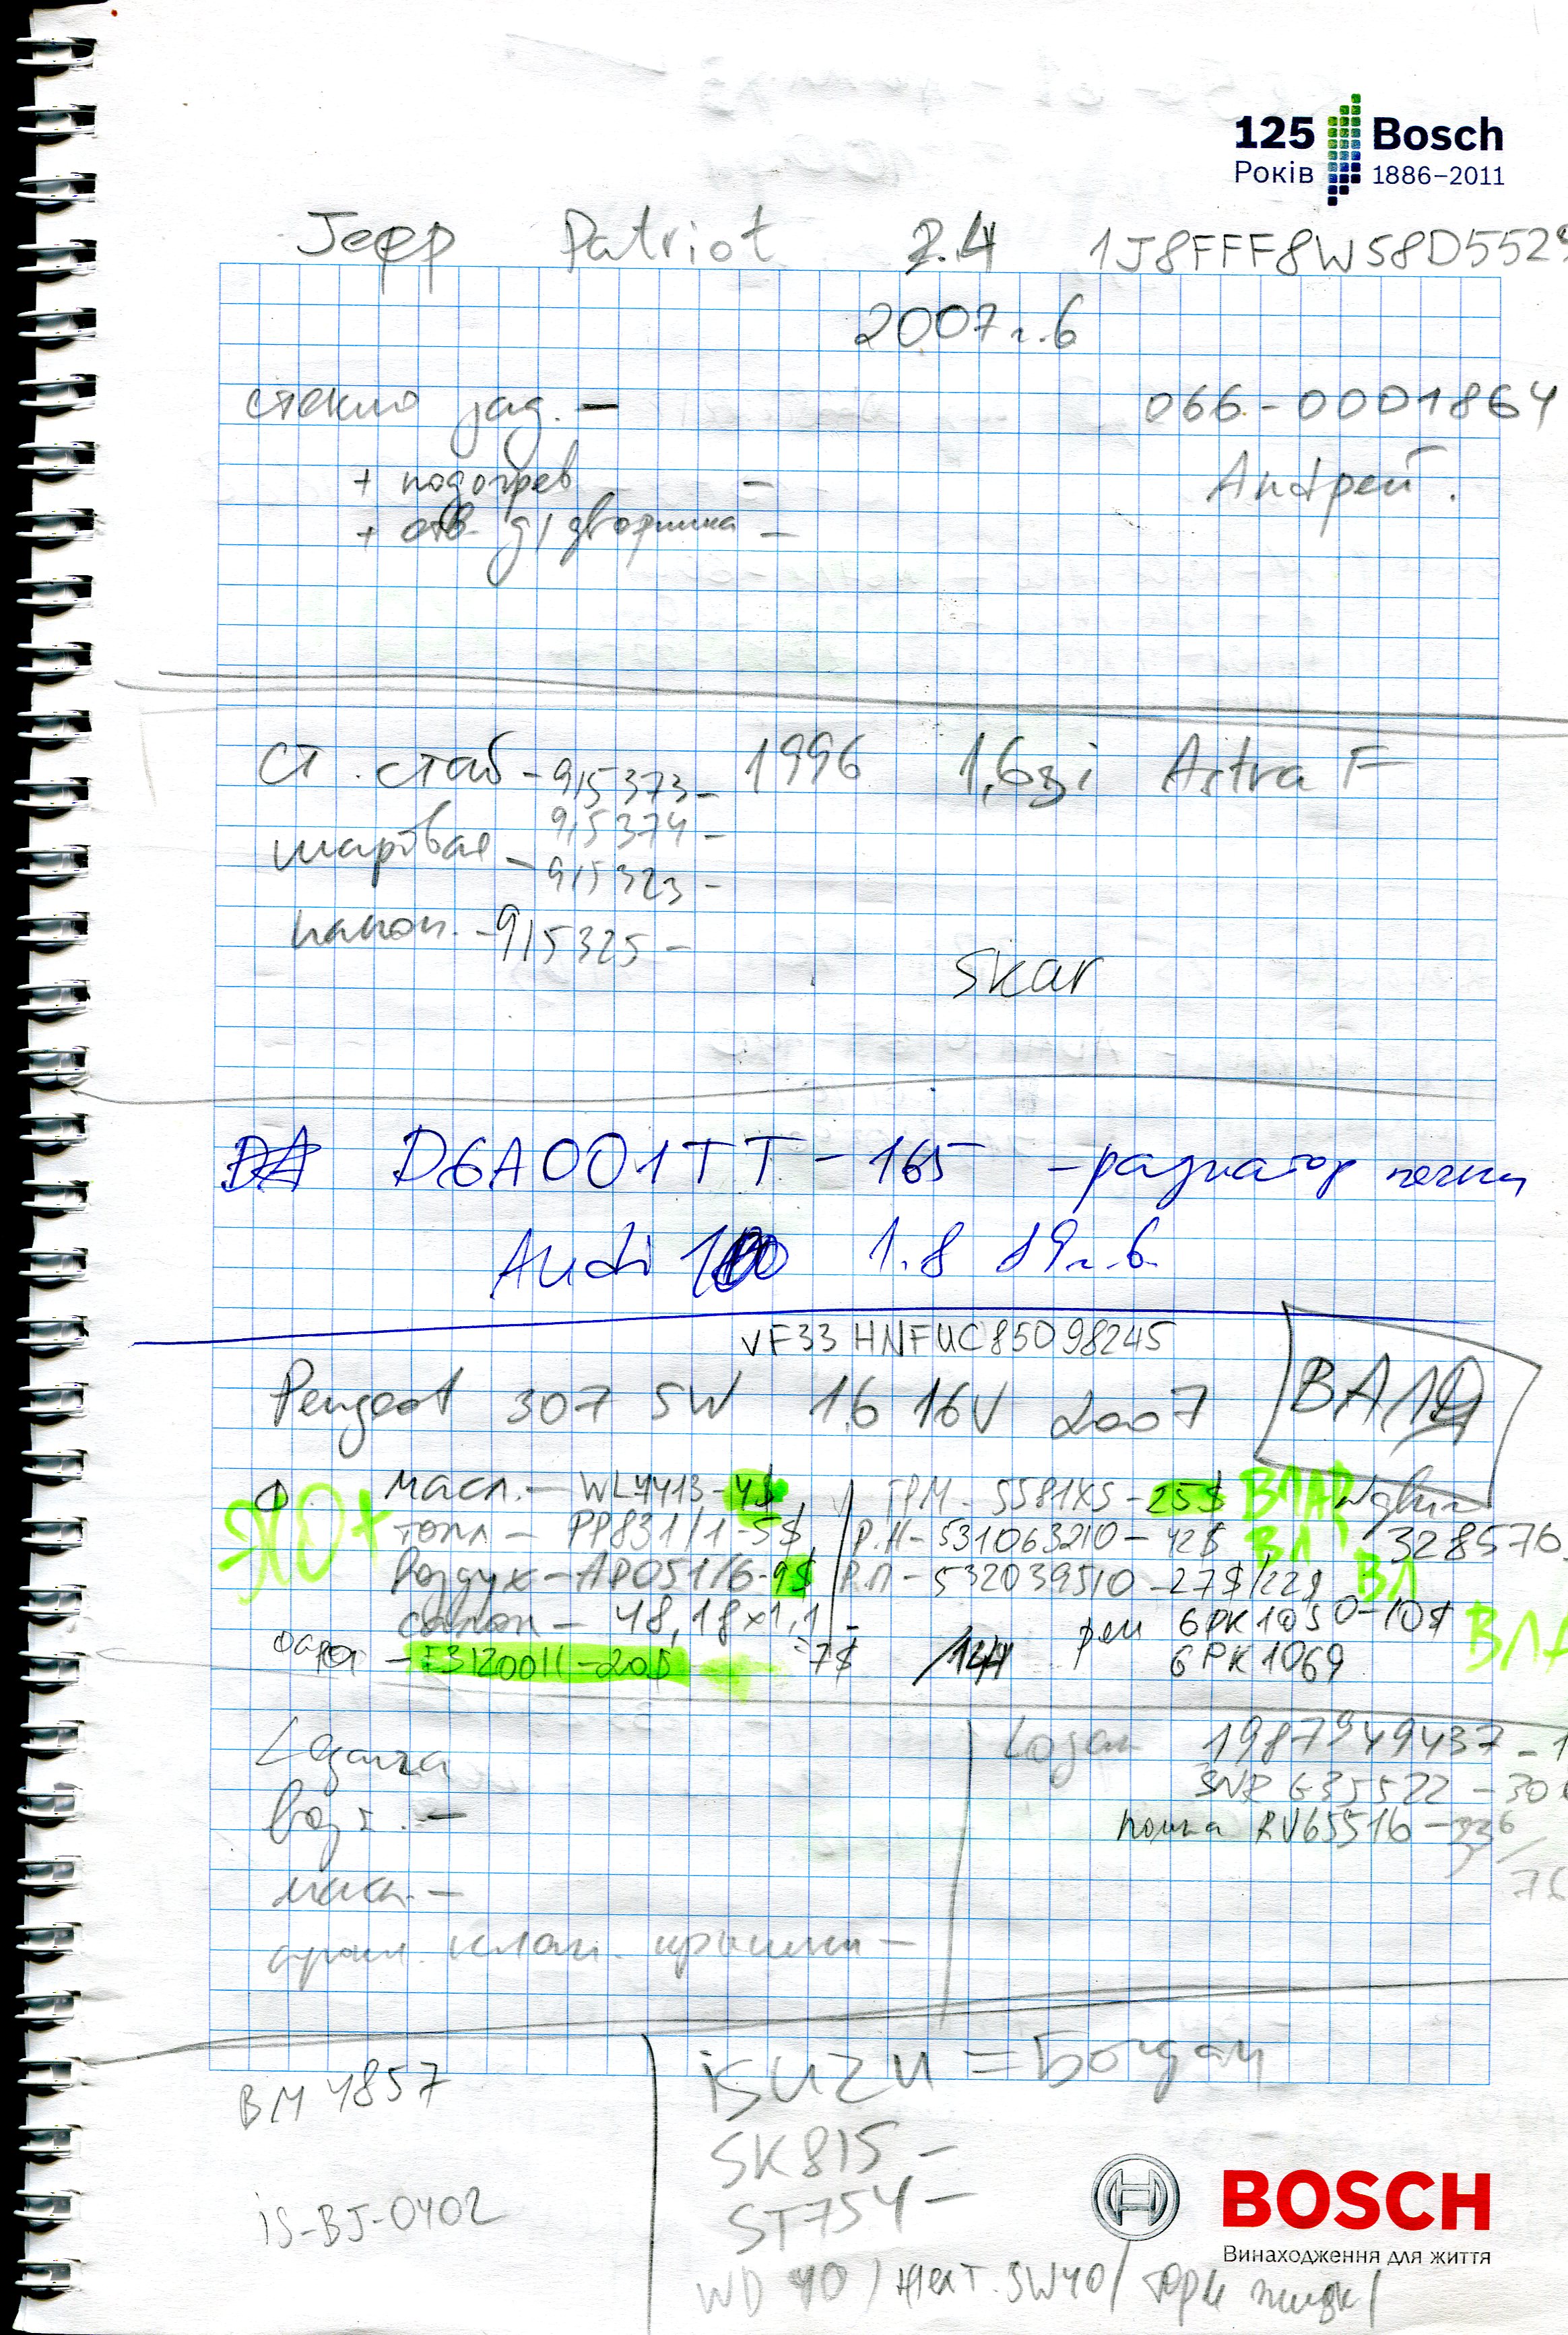 125 Bosch
Років 1886–2011
Jepp Patriot 2.4 1J8FFF8W58D5529
2007 г.в
стекло зад. –
066-0001864
+ подогрев –
Андрей.
+ отв. д/дворника –
ст. стаб - 915373 - 1996 1,6si Astra F
915374 -
шаровая - 915323 -
након. - 915325 -
Skar
D6A001TT - 165 - радиатор печки
Audi 100 1.8 89г.в.
VF33HNFUC85098245
Peugeot 307 SW 1.6 16V 2007 ВАЛД
Ф масл. - WL7413 - 4$ ГРМ - 5581XS - 25$ ВЛАД № двиг
ЭХО+ топл - PP831/1 - 5$ Р.Н - 531063210 - 42$ ВЛ 328576
воздух - AP051/6 - 9$ Р.П - 532039510 - 27$/22$ ВЛ
салон - 48,18x1,1 - 7$ рем 6PK1050 - 10$
- E3120011 - 20$ 144 6PK1069 ВЛА
Logan 1987949437 - 1
возд. -
SNR G35522 - 30
помпа RV65516 - 336
масл. -
76
прокл. клап. крышки -
isuzu = Богдан
BM 4857
SK815 -
ST754 -
iS-BJ-0402
BOSCH
Винаходження для життя
WD 40 / жест. SW40 / торм жидк /